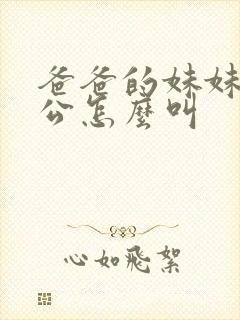 爸爸的妹妹
公怎麼叫
心如飛絮